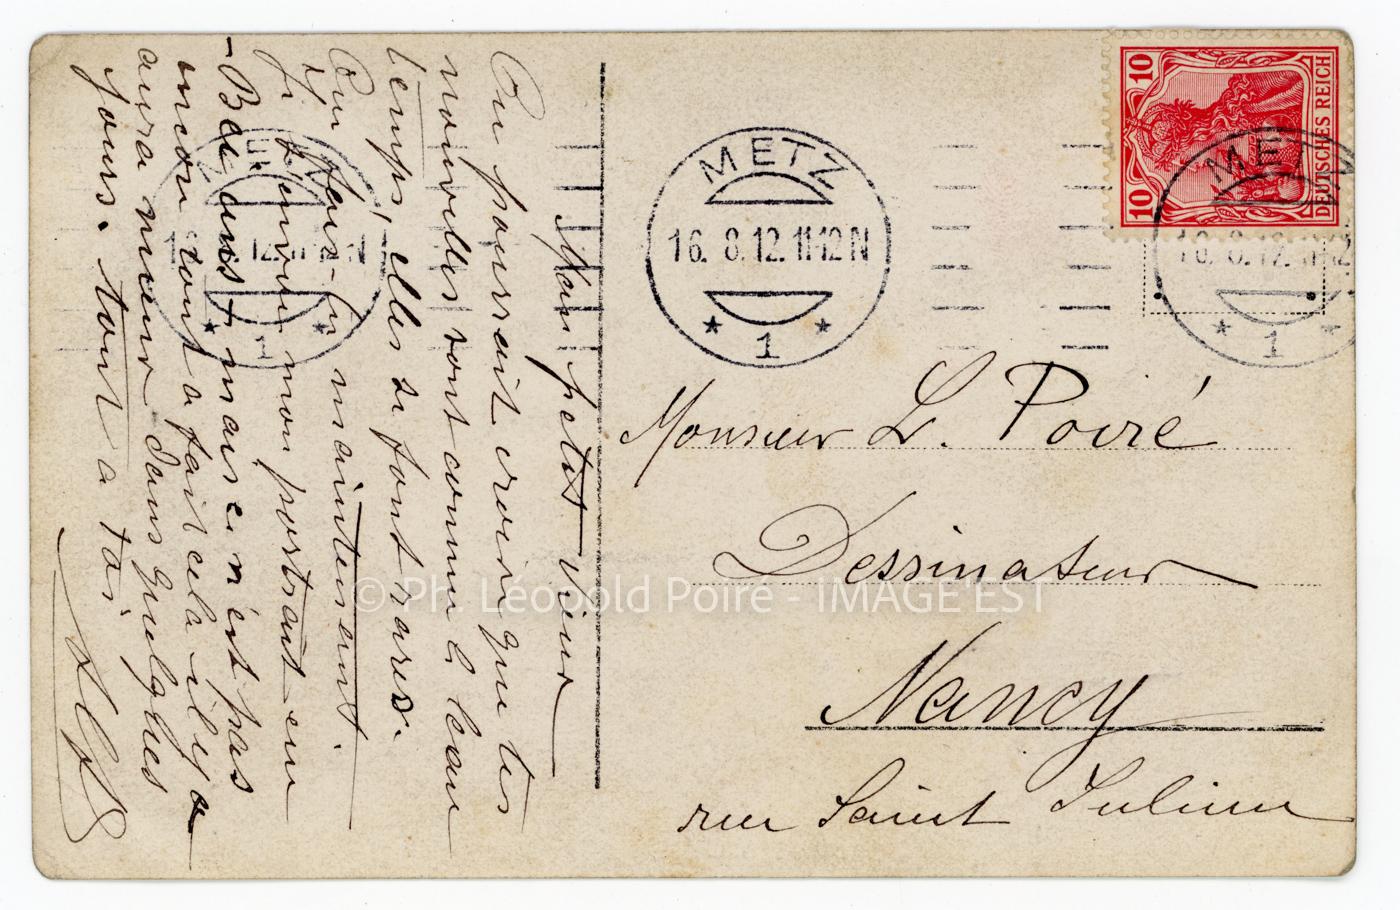 Mon petit vieux
On pourrait croire que tes
nouvelles sont comme le beau
temps, elles se font rares.
Que fais-tu maintenant.
Je t'envoie mon portrait en
-Bade. ans+, mais ce n'est pas
encore tout a fait cela il y a
aura mieux dans quelques
jours. tout a toi
METZ
16. 8.12. 11-12 N
* 1 *
METZ
16. 8.12. 11-12 N
* 1 *
METZ
16. 8.12. 11-12
* 1
10
10
DEUTSCHES REICH
Monsieur L. Poiré
Dessinateur
Nancy
rue Saint Julien
© Ph. Léopold Poiré - IMAGE'EST